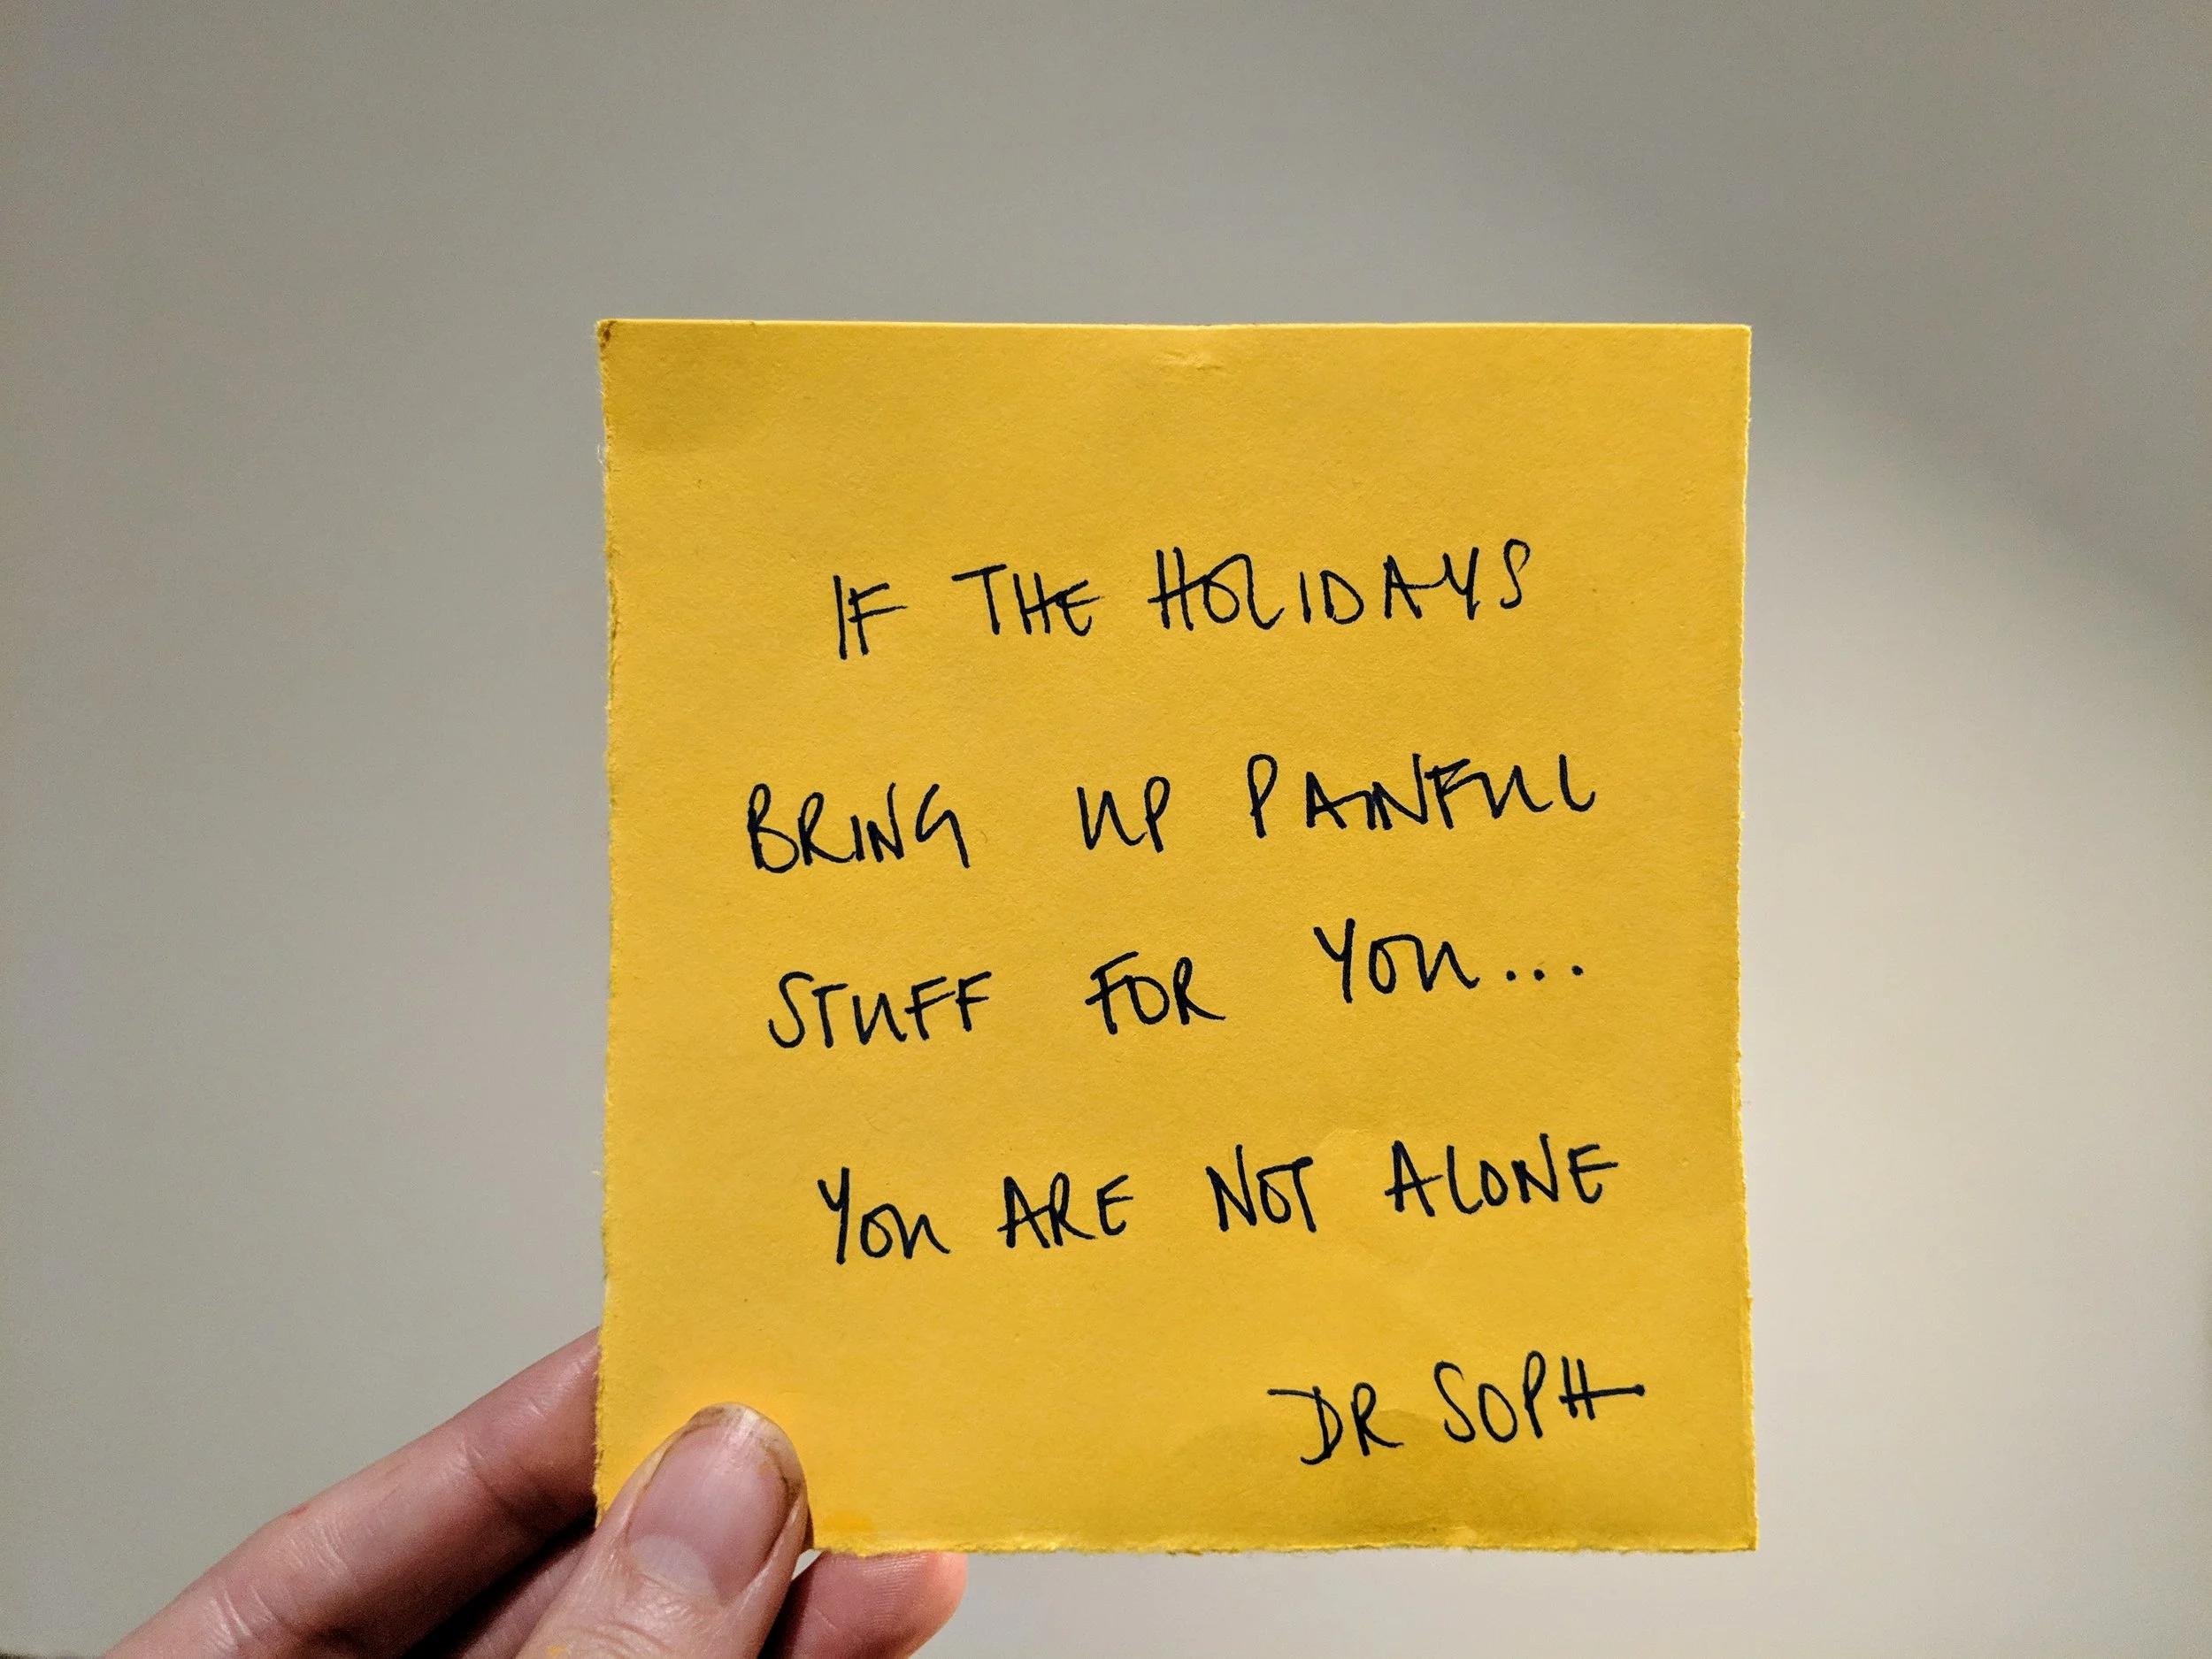 IF THE HOLIDAYS
BRING UP PAINFUL
STUFF FOR YOU...
YOU ARE NOT ALONE
DR SOPH